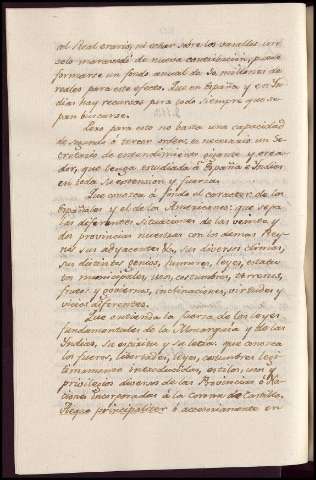 al Real erario, ni echar sobre los vasallos un
solo maravedí de nueva contribucion, puede
formarse un fondo anual de 30 millones de
reales para este efecto. Que en España y en In-
dias hay recursos para todo siempre que se-
pan buscarse.
Pero para esto no basta una capacidad
de segundo ó tercer orden: es necesario un Se-
cretario de entendimiento gigante y crea-
dor, que tenga estudiada á España é Indias
en toda su extension y fuerza.
Que conozca á fondo el caracter de los
Españoles y el de los Americanos: que sepa
las diferentes situaciones de las veinte y
dos provincias nuestras con los demas Rey-
nos sus adyacentes &a, sus diversos climas,
sus distintos genios, humores, leyes, estatu-
tos municipales, usos, costumbres, terrenos,
frutos y gobiernos, inclinaciones, virtudes y
vicios diferentes.
Que entienda la fuerza de las leyes
fundamentales de la Monarquía y de las
Indias, su espíritu y su letra: que conozca
los fueros, libertades, leyes, costumbres legi-
timamente introducidas, estilos, usos y
privilegios diversos de las Provincias ó Na-
ciones incorporadas á la corona de Castilla,
AEque principaliter ó accesoriamente en